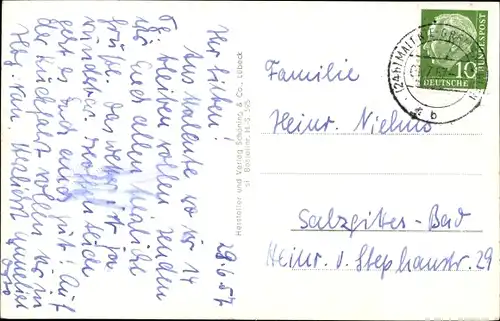 29.6.57
Ihr Lieben!
Aus Malente wo wir 14
Tg. bleiben wollen senden
wir Euch allen herzliche
Grüße. Das Wetter ist ja
wunderbar. Hoffentlich
geht es Euch auch gut! Auf
der Rückfahrt wollen wir in
Hbg.
Hersteller und Verlag Schöning & Co., Lübeck
Familie
Heinr.
Salzgitter-Bad
Heinr. v. Stephanstr. 29
(24b) MALENTE
10
DEUTSCHE
BUNDESPOST
b